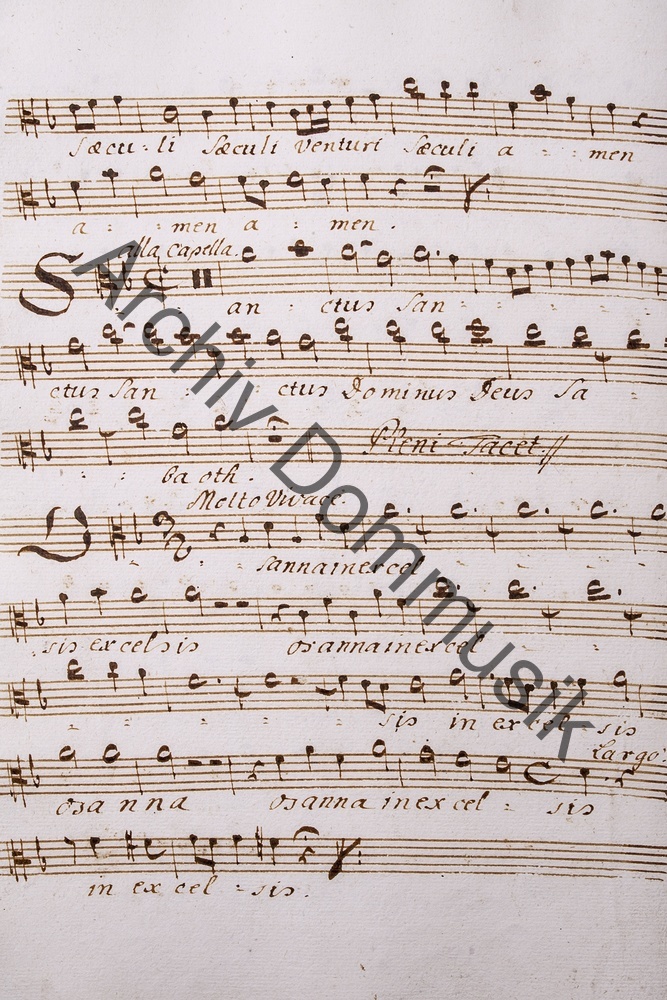 sæcu - li sæculi venturi sæculi a - - men
a - - men a - men.
alla Capella.
San - ctus San - - -
ctus San - ctus Dominus Deus Sa
- - ba oth.
Pleni Tacet.
Molto Vivace.
O - - - sanna in excel - - -
sis excelsis osanna in excel - - -
- - - - - sis in excel - sis
Largo.
osanna osanna in excel - sis
in excel - sis.
Archiv-Dommusik